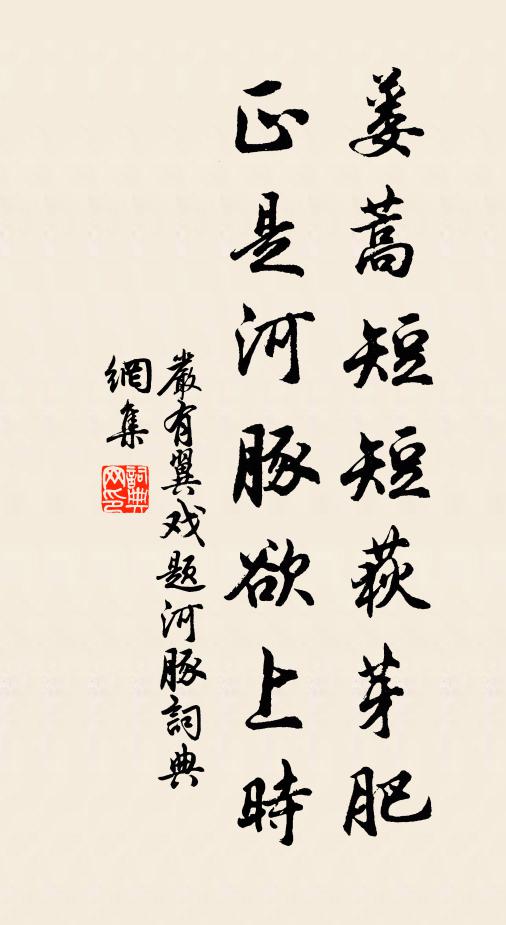 蔞蒿短短荻芽肥
正是河豚欲上時
嚴有翼戏题河豚詞典
網集
詞典網印